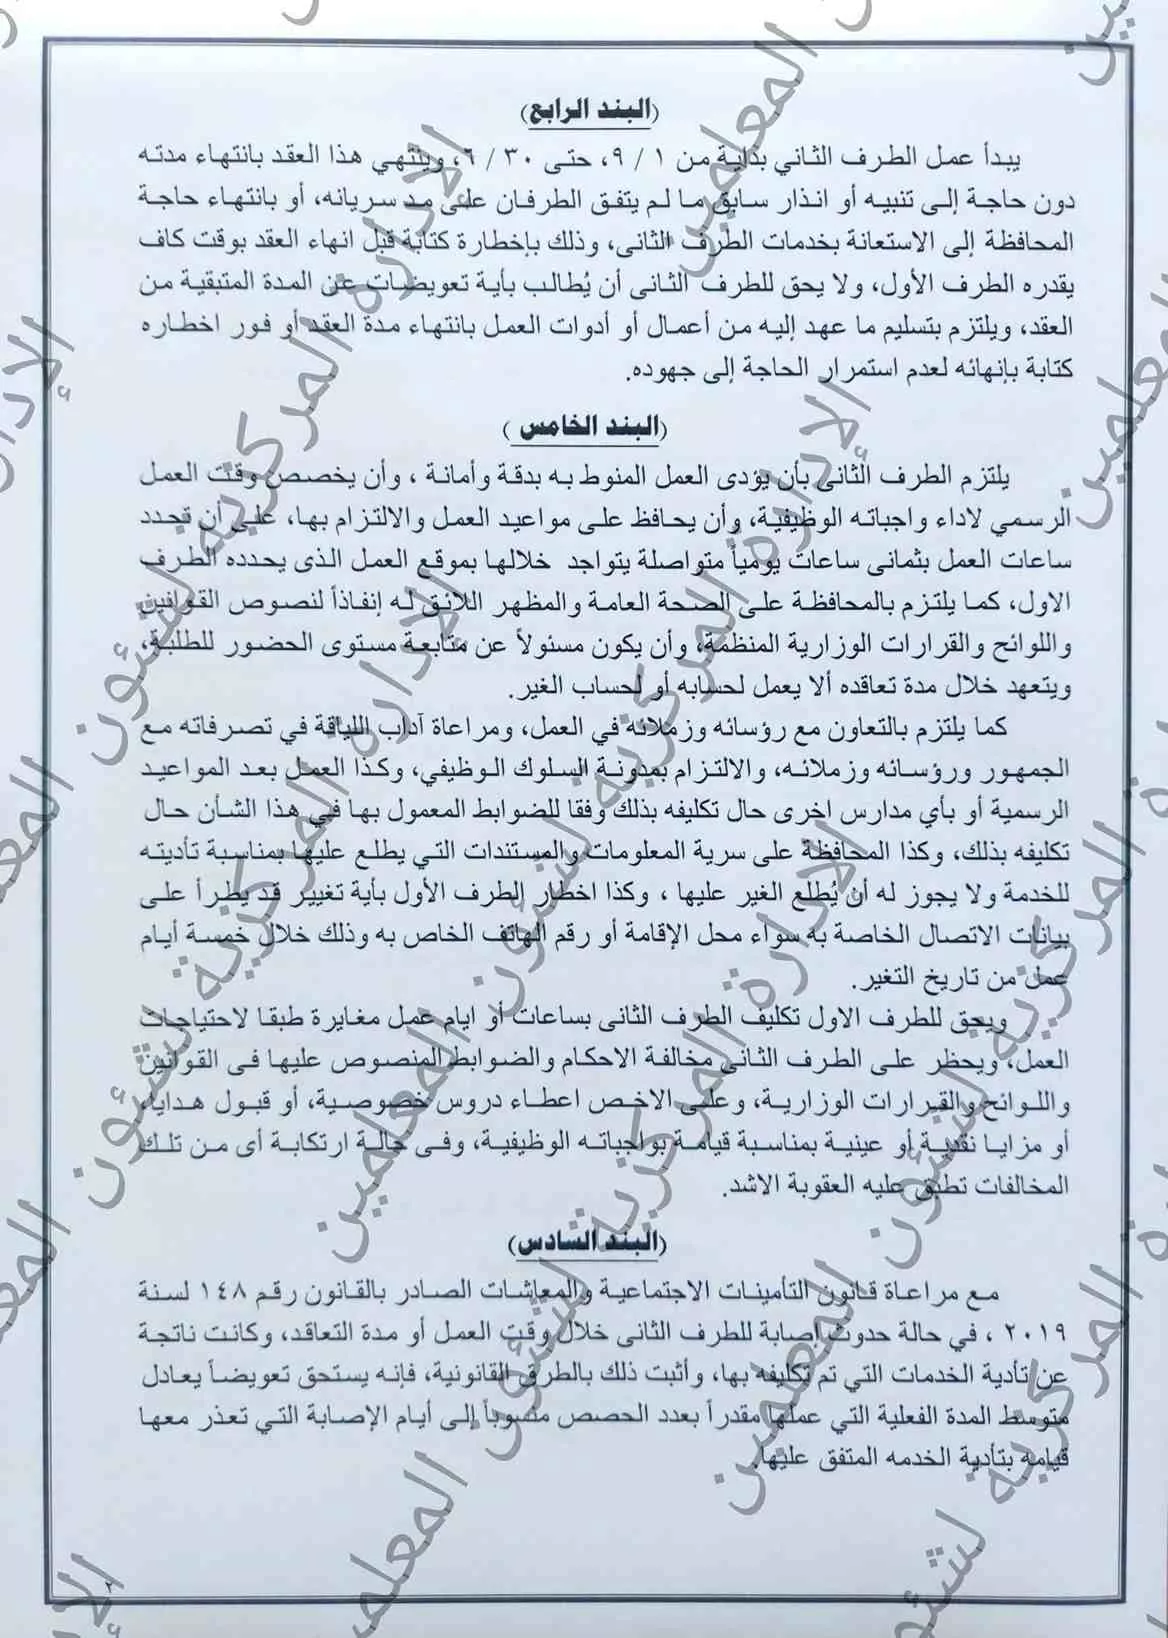 (البند الرابع)
يبدأ عمل الطرف الثاني بداية من ١ / ٩، حتى ٣٠ / ٦، وينتهي هذا العقد بانتهاء مدته
دون حاجة إلى تنبيه أو انذار سابق ما لم يتفق الطرفان على مد سريانه، أو بانتهاء حاجة
المحافظة إلى الاستعانة بخدمات الطرف الثانى، وذلك بإخطارة كتابة قبل انهاء العقد بوقت كاف
يقدره الطرف الأول، ولا يحق للطرف الثانى أن يُطالب بأية تعويضات عن المدة المتبقية من
العقد، ويلتزم بتسليم ما عهد إليه من أعمال أو أدوات العمل بانتهاء مدة العقد أو فور اخطاره
كتابة بإنهائه لعدم استمرار الحاجة إلى جهوده.
(البند الخامس )
يلتزم الطرف الثانى بأن يؤدى العمل المنوط به بدقة وأمانة ، وأن يخصص وقت العمل
الرسمي لاداء واجباته الوظيفية، وأن يحافظ على مواعيد العمل والالتزام بها، على أن تحدد
ساعات العمل بثمانى ساعات يومياً متواصلة يتواجد خلالها بموقع العمل الذى يحدده الطرف
الاول، كما يلتزم بالمحافظة على الصحة العامة والمظهر اللائق له إنفاذاً لنصوص القوانين
واللوائح والقرارات الوزارية المنظمة، وأن يكون مسئولاً عن متابعة مستوى الحضور للطلبة،
ويتعهد خلال مدة تعاقده ألا يعمل لحسابه أو لحساب الغير.
كما يلتزم بالتعاون مع رؤسائه وزملائه في العمل، ومراعاة آداب اللياقة في تصرفاته مع
الجمهور ورؤسائه وزملائه، والالتزام بمدونة السلوك الوظيفي، وكذا العمل بعد المواعيد
الرسمية أو بأي مدارس اخرى حال تكليفه بذلك وفقا للضوابط المعمول بها في هذا الشأن حال
تكليفه بذلك، وكذا المحافظة على سرية المعلومات والمستندات التي يطلع عليها بمناسبة تأديته
للخدمة ولا يجوز له أن يُطلع الغير عليها ، وكذا اخطار الطرف الأول بأية تغيير قد يطرأ على
بيانات الاتصال الخاصة به سواء محل الإقامة أو رقم الهاتف الخاص به وذلك خلال خمسة أيام
عمل من تاريخ التغير.
ويحق للطرف الاول تكليف الطرف الثانى بساعات أو ايام عمل مغايرة طبقا لاحتياجات
العمل، ويحظر على الطرف الثانى مخالفة الاحكام والضوابط المنصوص عليها فى القوانين
واللوائح والقرارات الوزارية، وعلى الاخص اعطاء دروس خصوصية، أو قبول هدايا،
أو مزايا نقدية أو عينية بمناسبة قيامة بواجباته الوظيفية، وفى حالة ارتكابة أى من تلك
المخالفات تطبق عليه العقوبة الاشد.
(البند السادس)
مع مراعاة قانون التأمينات الاجتماعية والمعاشات الصادر بالقانون رقم ١٤٨ لسنة
٢٠١٩ ، في حالة حدوث إصابة للطرف الثانى خلال وقت العمل أو مدة التعاقد، وكانت ناتجة
عن تأدية الخدمات التي تم تكليفه بها، وأثبت ذلك بالطرق القانونية، فإنه يستحق تعويضاً يعادل
متوسط المدة الفعلية التي عملها مقدراً بعدد الحصص منسوباً إلى أيام الإصابة التي تعذر معها
قيامه بتأدية الخدمه المتفق عليها.
٢
الإدارة المركزية لشئون المعلمين